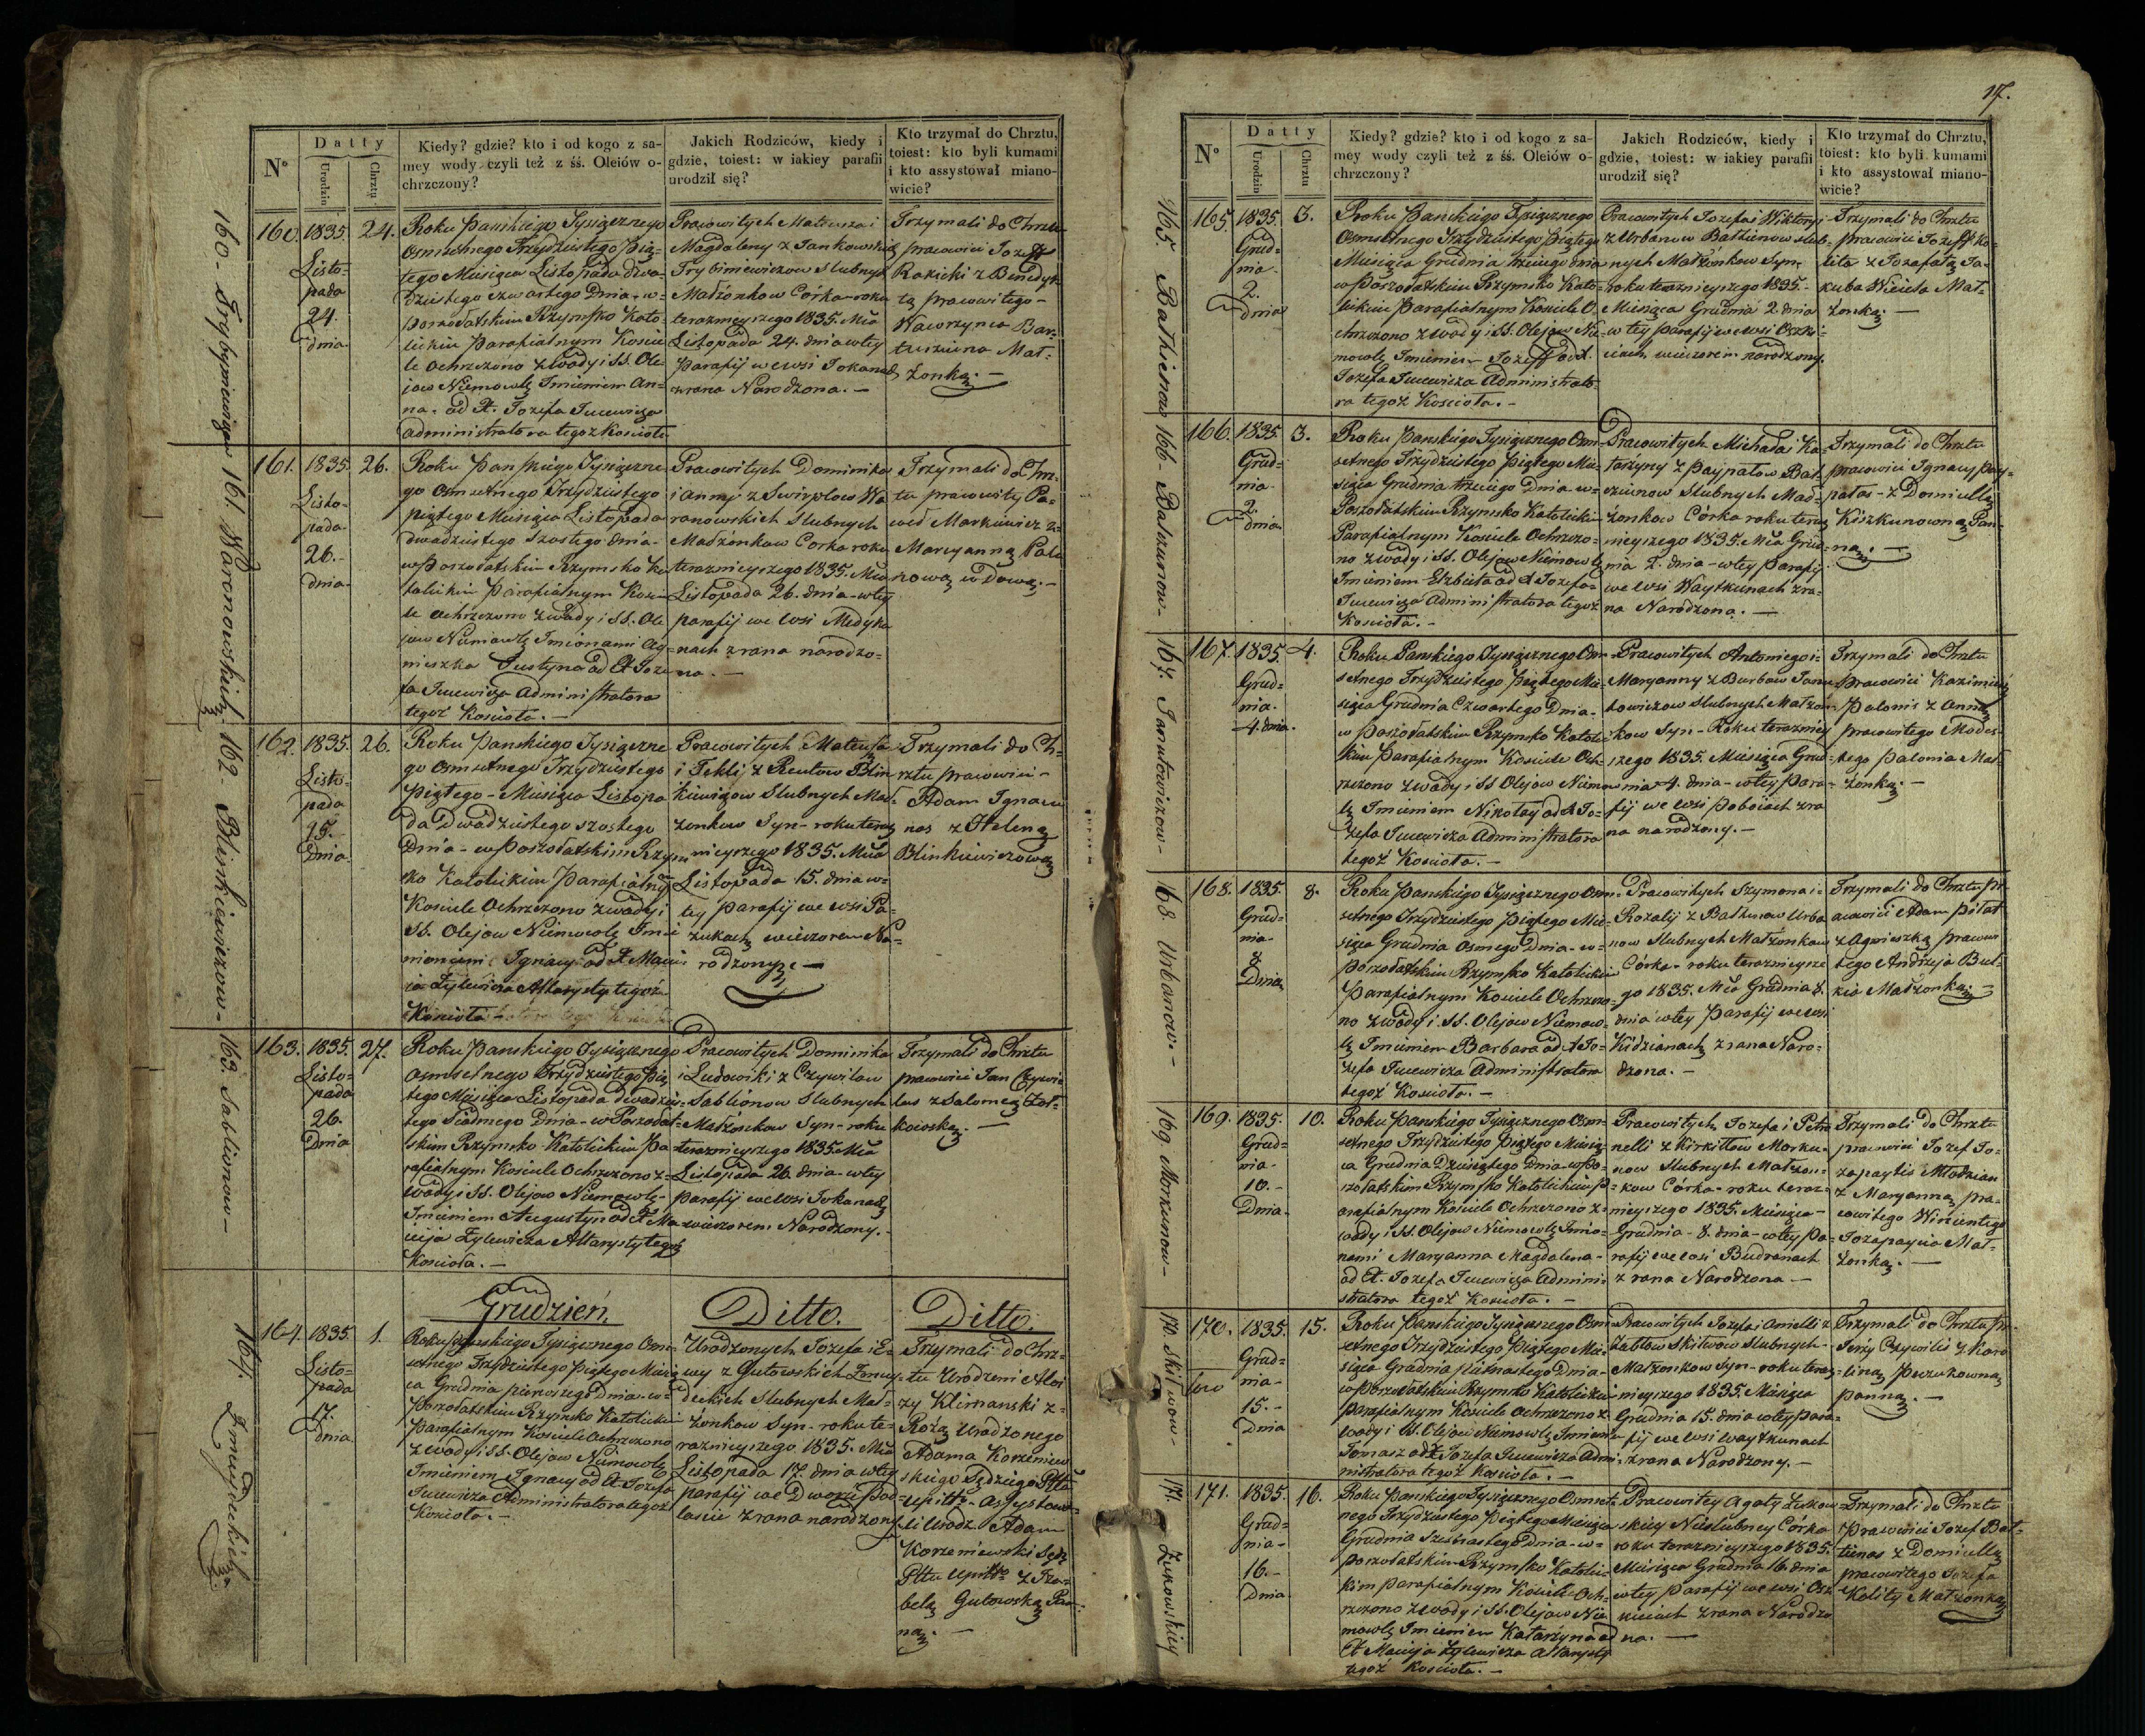 N°
Datty
Urodzin
Chrztu
Kiedy? gdzie? kto i od kogo z sa-
mey wody czyli też z śś. Oleiów o-
chrzczony?
Jakich Rodziców, kiedy i
gdzie, toiest: w iakiey parafii
urodził się?
Kto trzymał do Chrztu,
toiest: kto byli kumami
i kto assystował miano-
wicie?
160.
1835.
Listo-
pada
24.
dnia
24.
Roku Pańskiego Tysiącznego
Osmsetnego Trzydziestego Pią-
tego Miesiąca Listopada dwa-
dziestego czwartego Dnia w
Poszołatskim Rzymsko Kato-
lickim Parafialnym Koście
le Ochrzczono z Wody i SS. Ole-
jow Niemowlę Imieniem An-
na. od X. Jozefa Jucewicza
Administratora tegoż Kościoła
Pracowitych Mateusza i
Magdaleny z Jankowskich
Trybiniewiczow Slubnych
Małżonkow Córka roku
teraznieyszego 1835. Mca
Listopada 24. dnia w tey
Parafij we wsi Tokanach
zrana Narodzona. —
Trzymali do Chrztu
pracowici Jozeff
Rozicki z Benedyk
tą pracowitego
Wawrzynca Bar-
Mał-
żonką. —
161.
1835.
Listo-
pada
26.
dnia
26.
Roku Pańskiego Tysiączne-
go Osmsetnego Trzydziestego
piątego Miesiąca Listopada
dwadziestego szostego dnia
w Poszołatskim Rzymsko Ka
tolickim Parafialnym Kosciе
le ochrzczono z wody i SS. Ole
jow Niemowlę Imionami Ag-
nieszka Justyna od X Joze
fa Jucewicza Administratora
tegoż Kościoła. —
Pracowitych Dominika
i Anny z Swirplow Wa
ranowskich Slubnych
Małżonkow Corka roku
teraznieyszego 1835. Mca
Listopada 26. dnia w tey
parafij we wsi Medyka
niach zrana narodzo-
na. —
Trzymali do Chrz-
tu pracowity Pa-
weł Markiewicz z
Maryanną Pala
nową wdową. —
162.
1835.
Listo-
pada
15.
Dnia
26.
Roku Pańskiego Tysiączne
go Osmsetnego Trzydziestego
Piątego Miesiąca Listopa
da Dwudziestego szostego
Dnia w Poszołatskim Rzym
sko Katolickim Parafialnym
Kościele Ochrzczono z wody i
SS. Olejow Niemowlę Imie
nioniem Ignacy od X Macie
ja Żylewicza Altarysty tegoż
Kościoła —
Pracowitych Mateusza
i Tekli z Rentow Blin
kiewiczow Slubnych Mał-
żonkow Syn roku teraz
nieyszego 1835. Mca
Listopada 15. dnia w
tey Parafij we wsi Pa-
żukach wieczorem Na-
rodzony. —
Trzymali do Ch-
rztu pracowici
Adam Ignacu
nos z Heleną
Blinkiewiczową
163.
1835.
Listo-
pada
26.
Dnia
27.
Roku Pańskiego Tysiącznego
Osmsetnego Trzydziestego Pią
tego Miesiąca Listopada dwadzies
tego Siodmego Dnia w Poszołat-
skim Rzymsko Katolickim Pa
rafialnym Kościele Ochrzczono z
Wody i SS. Olejow Niemowlę
Imieniem Augustyn od X Ma-
cieja Żylewicza Altarysty tegoż
Kościoła. —
Pracowitych Dominika
i Ludowiki z Czywilow
Sablionow Slubnych
Małżonkow Syn roku
teraznieyszego 1835 Mca
Listopada 26. dnia w tey
parafij we wsi Tokanach
wieczorem Narodzony.
Trzymali do Chrztu
pracowici Jan Czywi
lus z Salomeą
164.
1835.
Listo-
pada
17.
dnia
1.
Grudzień.
Roku Pańskiego Tysiącznego Osm-
setnego Trzydziestego Piątego Miesią
ca Grudnia pierwszego Dnia w
Poszołatskim Rzymsko Katolickim
Parafialnym Kościele Ochrzczono
z wody i SS. Olejow Niemowlę
Imieniem Ignacy od X Jozefa
Jucewicza Administratora tegoż
Kościoła. —
Ditto.
Urodzonych Jozefa i E-
wy z Gutowskich Zmuy-
dzkich Slubnych Mał-
żonkow Syn roku te-
raznieyszego 1835. Mca
Listopada 17. dnia w tey
parafij we Dworze Pod
lasiu zrana narodzony
Ditto.
Trzymali do Chrz-
tu Urodzeni Aloi
zy Klimanski z
Rożą Urodzonego
Adama Korzeniew
skiego Sędziego Pttu
Upitt. Assystowa-
li Urodz. Adam
Korzeniewski Sędz
Pttu Upitt. z Iza-
belą Gutowską Pan-
ną. —
160 - Trybyniewiczow
161. Waronowskich
162 - Blinkiewiczow
163. Sablionow
164. Zmuydzkich
17.
N°
Datty
Urodzin
Chrztu
Kiedy? gdzie? kto i od kogo z sa-
mey wody czyli też z śś. Oleiów o-
chrzczony?
Jakich Rodziców, kiedy i
gdzie, toiest: w iakiey parafii
urodził się?
Kto trzymał do Chrztu,
toiest: kto byli kumami
i kto assystował miano-
wicie?
165.
1835.
Grud-
nia
2.
dnia
3.
Roku Pańskiego Tysiącznego
Osmsetnego Trzydziestego Piątego
Miesiąca Grudnia trzeciego dnia
w Poszołatskim Rzymsko Kato-
lickim Parafialnym Kościele O-
chrzczono z wody i SS. Olejow Nie-
mowlę Imieniem Jozeff od X.
Jozefa Jucewicza Administrato
ra tegoż Kościoła. —
Pracowitych Jozefa i Wiktoryi
z Urbanow Batkienow slub-
nych Małżonkow Syn
roku teraznieyszego 1835.
Miesiąca Grudnia 2. dnia
w tey Parafij we wsi
wieczorem narodzony.
Trzymali do Chrztu
pracowici Jozeff Ko-
lita z Jozafatą Ja-
kuba Wiciela Mał-
żonką. —
166.
1835.
Grud-
nia
2.
dnia
3.
Roku Pańskiego Tysiącznego Osm-
setnego Trzydziestego Piątego Mie-
siąca Grudnia trzeciego Dnia w
Poszołatskim Rzymsko Katolickim
Parafialnym Kościele Ochrzczo-
no z wody i SS. Olejow Niemowlę
Imieniem Elzbieta od X Jozefa
Jucewicza Administratora tegoż
Kościoła. —
Pracowitych Michała i Ka-
tarzyny z Paypałow Bal-
czunow Slubnych Mał-
żonkow Córka roku teraz
nieyszego 1835. Mca Grud-
nia 2. dnia w tey Parafij
we wsi Waytkunach zra-
na Narodzona. —
Trzymali do Chrztu
pracowici Ignacy Pay-
pałas z Domicellą
Kiszkunowną Pan-
ną. —
167.
1835.
Grud-
nia
4. dnia
4.
Roku Pańskiego Tysiącznego Osm
setnego Trzydziestego Piątego Mie-
siąca Grudnia Czwartego Dnia
w Poszołatskim Rzymsko Katolic
kim Parafialnym Kościele Och-
rzczono z wody i SS Olejow Niemow
lę Imieniem Nikołay od X Jo-
zefa Jucewicza Administratora
tegoż Kościoła. —
Pracowitych Antoniego i
Maryanny z Burbow Janu-
towiczow Slubnych Małżon-
kow Syn Roku teraźniey
szego 1835. Miesiąca Grud-
nia 4. dnia w tey Para-
fij we wsi Poboiach zra
na narodzony. —
Trzymali do Chrztu
pracowici Kazimierz
Palonis z Anną
pracowitego Mode-
stego Palonia Mał-
żonką. —
168.
1835.
Grud-
nia
8
Dnia
8.
Roku Pańskiego Tysiącznego Osm-
setnego Trzydziestego Piątego Mie-
siąca Grudnia Osmego Dnia w
Poszołatskim Rzymsko Katolickim
Parafialnym Kościele Ochrzczo-
no z wody i SS. Olejow Niemow-
lę Imieniem Barbara od X Jo-
zefa Jucewicza Administratora
tegoż Kościoła. —
Pracowitych Szymona i
Rozalij z Batkunow Urba
now Slubnych Małżonkow
Córka roku teraznieysze
go 1835. Mca Grudnia 8.
dnia w tey Parafij we wsi
Kidzianach zrana Naro-
dzona. —
Trzymali do Chrztu pr
acowici Adam
z Agnieszką pracowi
tego Andrzeja But-
kia Małżonką. —
169.
1835.
Grud-
nia
10.
Dnia
10.
Roku Pańskiego Tysiącznego Osm-
setnego Trzydziestego Piątego Miesią-
ca Grudnia Dziesiątego Dnia w Po-
szołatskim Rzymsko Katolickim P-
arafialnym Kościele Ochrzczono z
wody i SS. Olejow Niemowlę Imio-
nami Maryanna Magdalena
od X. Jozefa Jucewicza Admini-
stratora tegoż Kościoła. —
Pracowitych Jozefa i Petro
nelli z Kirkiłlow Morku-
now Slubnych Małżon-
kow Córka roku teraz-
nieyszego 1835. Miesiąca
Grudnia 8. dnia w tey Pa-
rafij we wsi Budranach
z rana Narodzona —
Trzymali do Chrztu
pracowici Jozef Jo-
zapaytis Młodzian
z Maryanną pra-
cowitego Wincentego
Jozapaycia Mał-
żonką. —
170.
1835.
Grud-
nia
15.
Dnia
15.
Roku Pańskiego Tysiącznego Osm
setnego Trzydziestego Piątego Mie-
siąca Grudnia piętnastego Dnia
w Poszołatskim Rzymsko Katolickim
Parafialnym Kościele Ochrzczono z
wody i SS. Olejow Niemowlę Imieniem
Tomasz od X Jozefa Jucewicza Admi-
nistratora tegoż Kościoła. —
Pracowitych Jozefa i Anielli z
Żabłow Skitwow Slubnych
Małżonkow Syn roku teraz-
nieyszego 1835 Miesiąca
Grudnia 15. dnia w tey para-
fij we wsi Waytkunach
zrana Narodzony. —
Trzymali do Chrztu pr.
Jerzy Czywilis z Karo
liną
panną. —
171.
1835.
Grud-
nia
16.
Dnia
16.
Roku Pańskiego Tysiącznego Osmset-
nego Trzydziestego Piątego Miesiąca
Grudnia Szesnastego Dnia w
Poszołatskim Rzymsko Katolic-
kim Parafialnym Kościele Och-
rzczono z wody i SS. Olejow Nie
mowlę Imieniem Katarzyna od
X Macieja Żylewicza Altarysty
tegoż Kościoła. —
Pracowitey Agaty Żukow-
skiey Nieslubney Córka
roku teraznieyszego 1835.
Miesiąca Grudnia 16. dnia
w tey Parafij we wsi
zrana Narodzo
na. —
Trzymali do Chrztu
Pracowici Jozef Bat-
kienas z Domicellą
pracowitego Jozefa
Kolity Małżonką
165. Batkienow
166 - Balczunow
167. Janutowiczow
168 Urbanow.
169. Morkunow
170. Skitwow
171. Żukowskiey